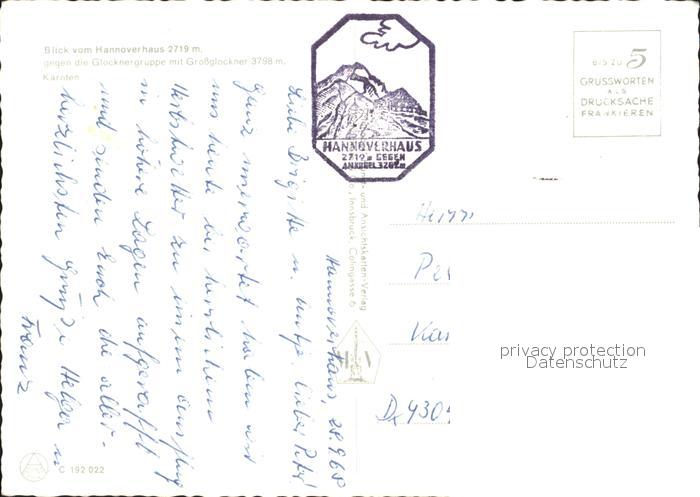 Blick vom Hannoverhaus 2719 m.
gegen die Glocknergruppe mit Großglockner 3798 m.
Kärnten
HANNOVERHAUS
2719 m GEGEN
ANKOGEL 3262 m
BIS ZU 5
GRUSSWORTEN
ALS
DRUCKSACHE
FRANKIEREN
Hannoverhaus, 28.9.68
Liebe Brigitte u. Antje, lieber Peter!
Ganz unerwartet haben wir
uns heute bei herrlichem
Herbstwetter zu einem Ausflug
in höhere Lagen aufgerafft
und senden Euch die aller-
herzlichsten Grüße Helga u
Franz
- und Ansichtskarten-Verlag
Innsbruck, Colingasse 6
Herrn
Pe
Kar
D-430
privacy protection
Datenschutz
C 192 022